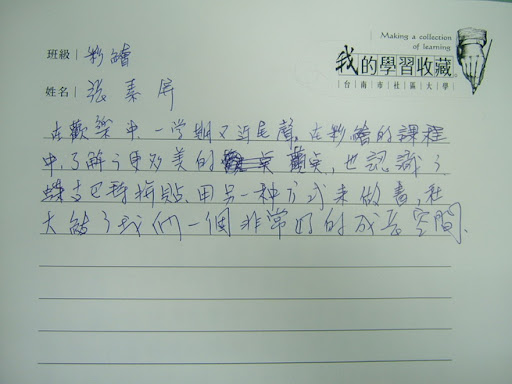 Making a collection
of learning
我的學習收藏
台南市社區大學
班級 彩繪
姓名 張素屏
在歡樂中,一學期又近尾聲,在彩繪的課程
中,了解了更多美的觀点,也認識了
蝶古巴特拼貼,用另一种方式來做畫,社
大給了我們一個非常好的成長空間.